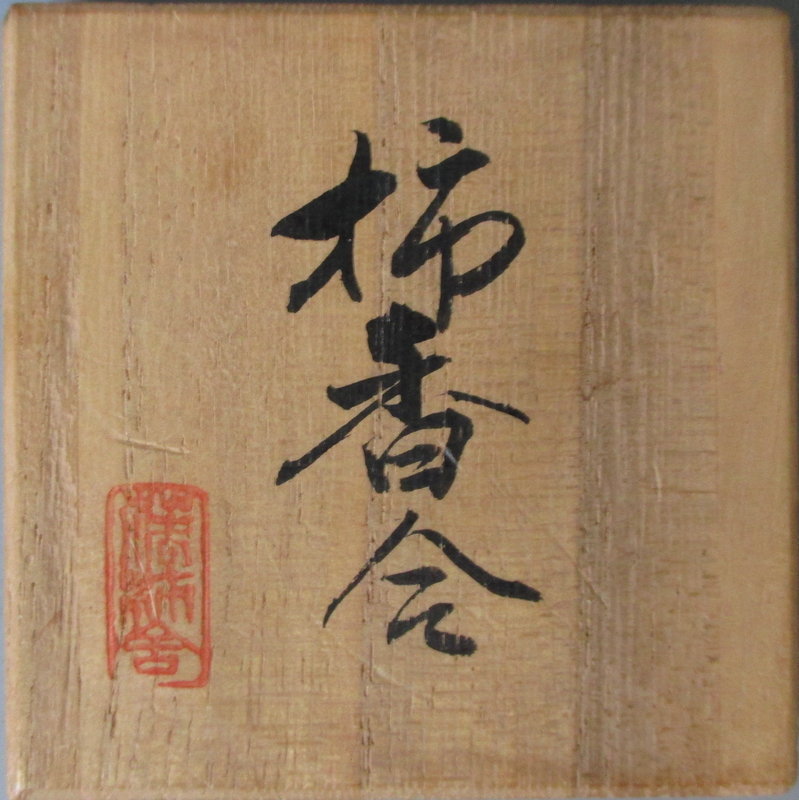 柿香合